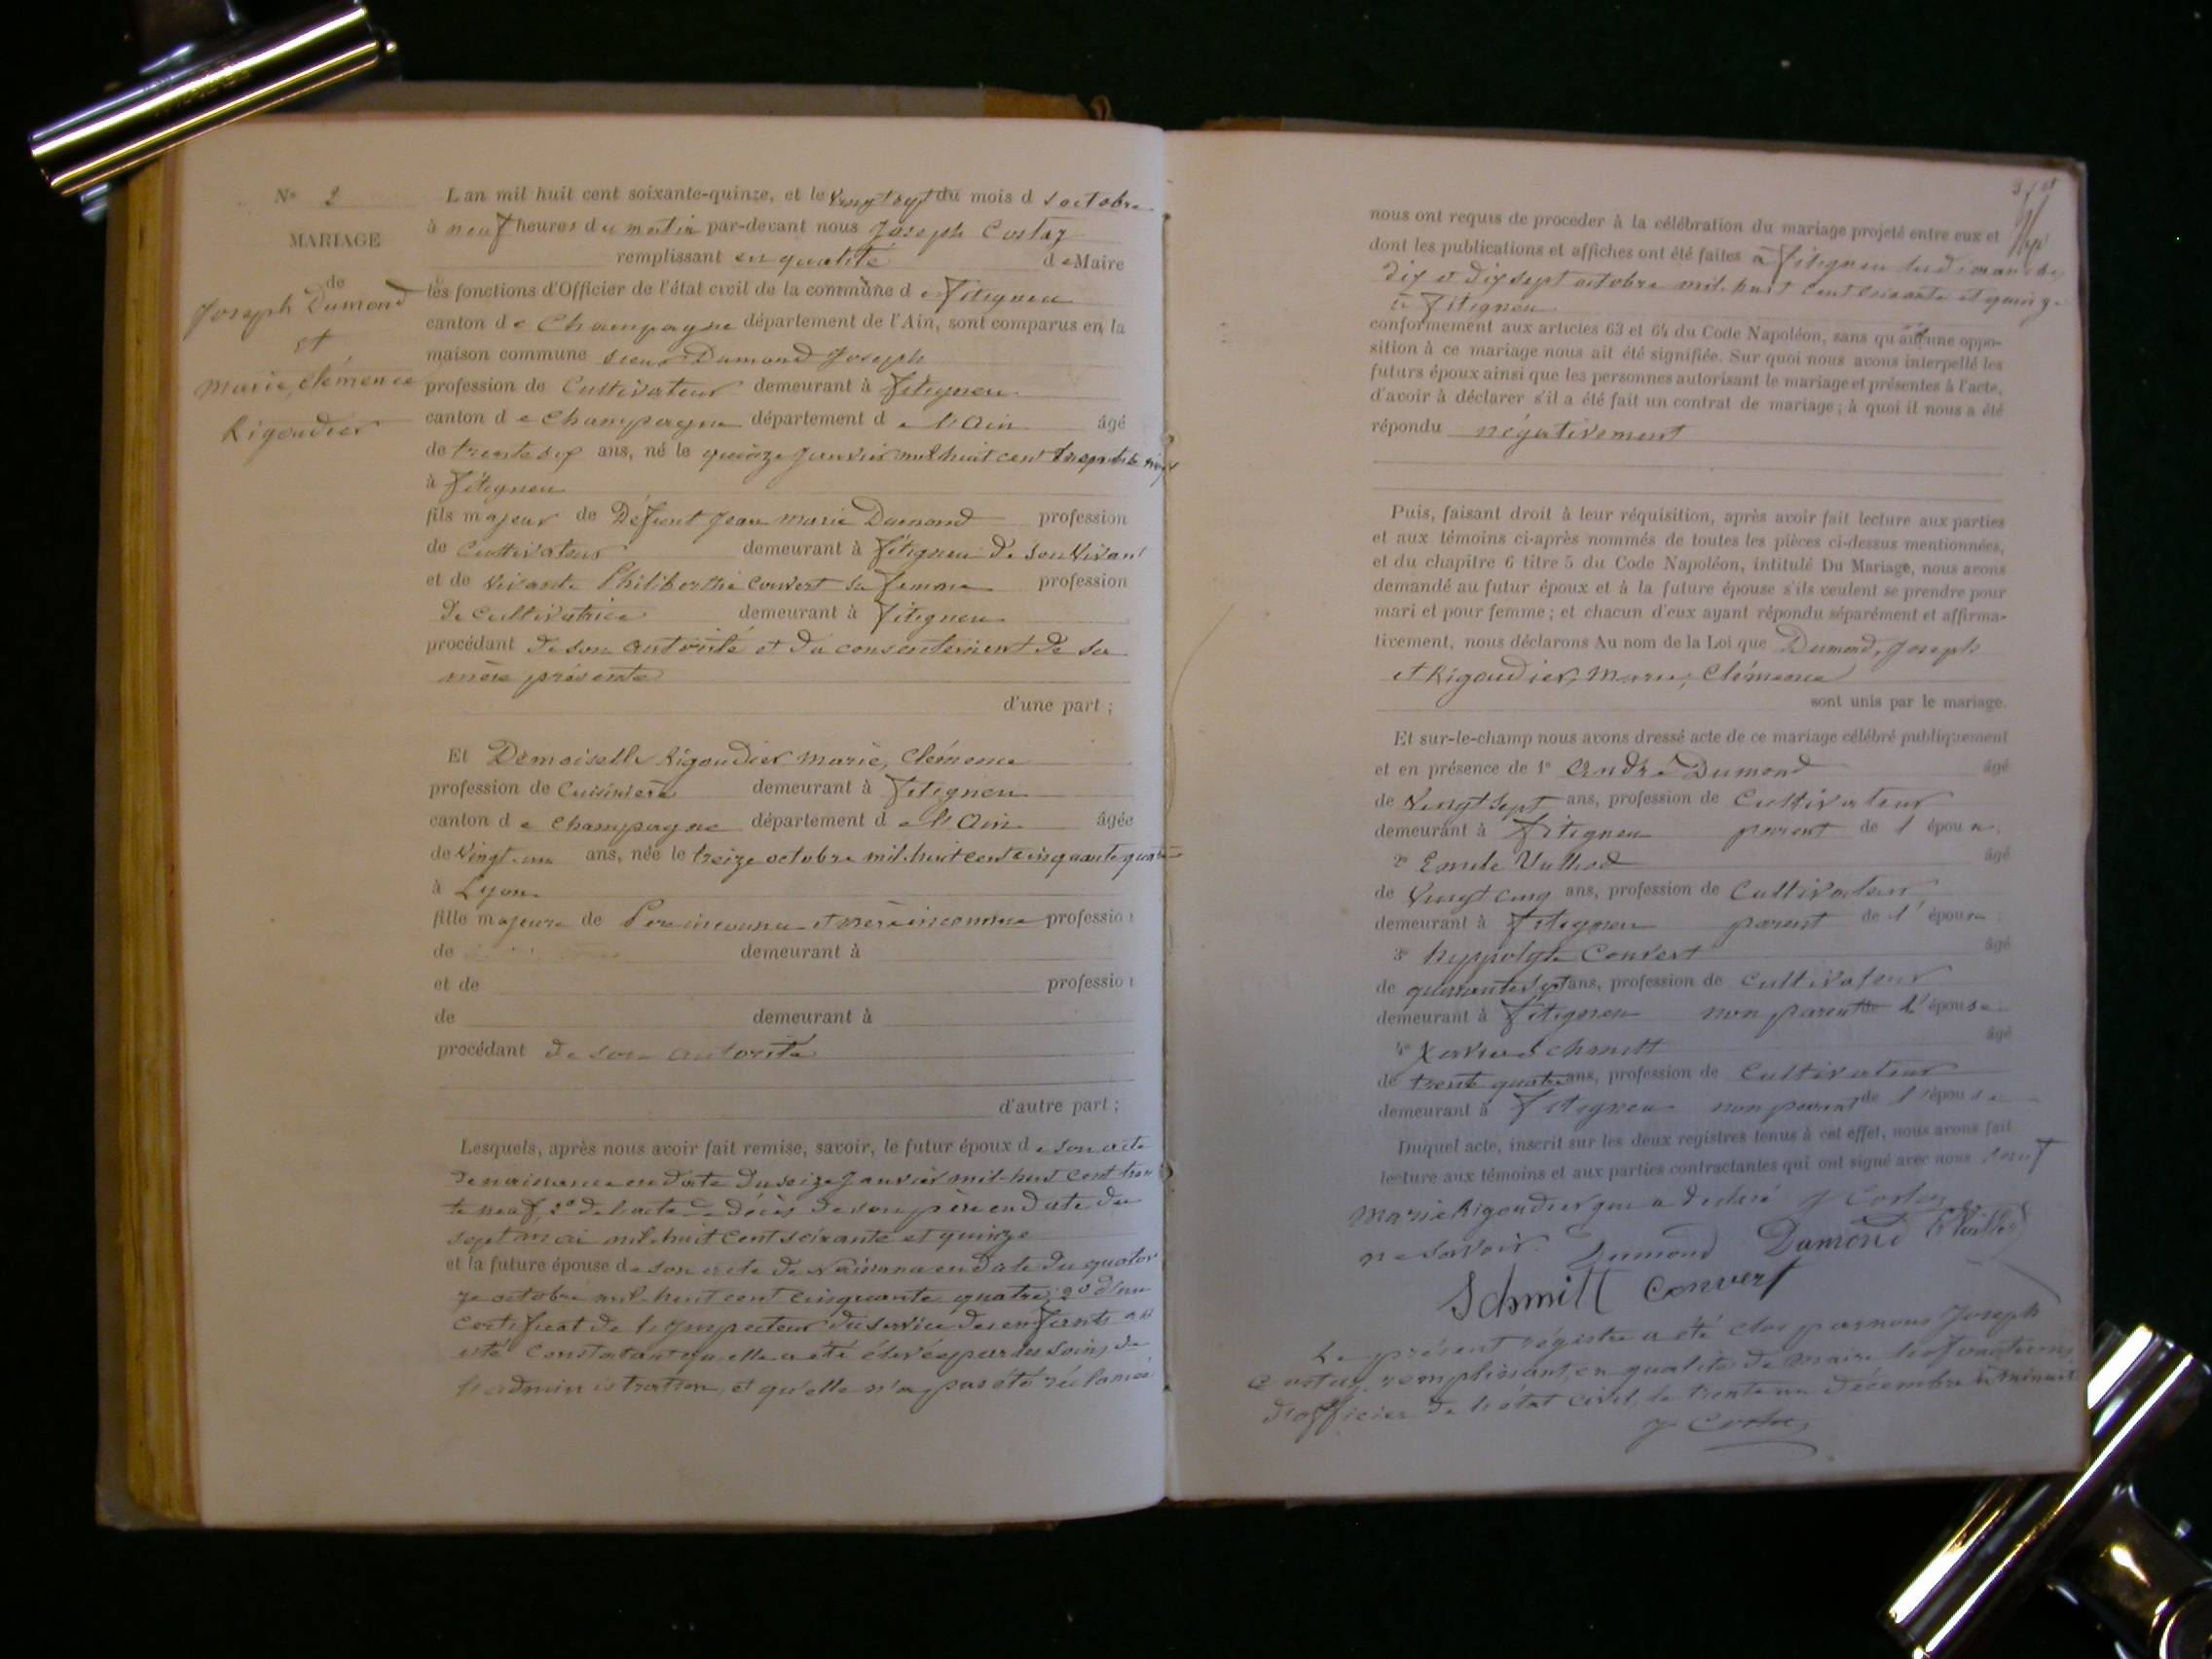 N° 2
MARIAGE
de
Joseph Dumond
et
Marie, Clémence
Rigoudier
L'an mil huit cent soixante-quinze, et le vingt sept du mois d'octobre
à neuf heures du matin par-devant nous Joseph Costaz
remplissant en qualité de Maire
les fonctions d'Officier de l'état civil de la commune de fitigneu
canton de Champagne département de l'Ain, sont comparus en la
maison commune sieur Dumond Joseph
profession de Cultivateur demeurant à fitigneu
canton de Champagne département de l'Ain âgé
de trente six ans, né le quinze janvier mil huit cent
à fitigneu
fils majeur de Défunt Jean marie Dumond profession
de Cultivateur demeurant à fitigneu de son Vivant
et de vivante Philiberthe Convert sa femme profession
de cultivatrice demeurant à fitigneu
procédant de son autorité et du consentement de sa
mère présente
d'une part ;
Et Demoiselle Rigoudier Marie, Clémence
profession de Cuisinière demeurant à fitigneu
canton de Champagne département de l'Ain âgée
de Vingt-un ans, née le treize octobre mil huit cent cinquante quatre
à Lyon
fille majeure de Père inconnu et mère inconnue profession
de demeurant à
et de profession
de demeurant à
procédant de son autorité
d'autre part ;
Lesquels, après nous avoir fait remise, savoir, le futur époux de son acte
de naissance en date du seize Janvier mil-huit cent tren
te neuf, 2° de l'acte de décès de son père en date du
sept mai mil huit cent soixante et quinze
et la future épouse de son acte de Naissance en date du quator
ze octobre mil huit cent cinquante quatre, 2° d'un
certificat de l'Inspecteur du service des enfants ass
isté constatant qu'elle a été élevée par les soins de
l'administration, et qu'elle n'a pas été réclamée
nous ont requis de procéder à la célébration du mariage projeté entre eux et
dont les publications et affiches ont été faites à fitigneu les dimanches
dix et dix sept octobre mil huit cent soixante et quinze
à fitigneu
conformément aux articles 63 et 64 du Code Napoléon, sans qu'aucune oppo-
sition à ce mariage nous ait été signifiée. Sur quoi nous avons interpellé les
futurs époux ainsi que les personnes autorisant le mariage et présentes à l'acte,
d'avoir à déclarer s'il a été fait un contrat de mariage ; à quoi il nous a été
répondu négativement
Puis, faisant droit à leur réquisition, après avoir fait lecture aux parties
et aux témoins ci-après nommés de toutes les pièces ci-dessus mentionnées,
et du chapitre 6 titre 5 du Code Napoléon, intitulé Du Mariage, nous avons
demandé au futur époux et à la future épouse s'ils veulent se prendre pour
mari et pour femme ; et chacun d'eux ayant répondu séparément et affirma-
tivement, nous déclarons Au nom de la Loi que Dumond, Joseph
et Rigoudier, Marie, Clémence
sont unis par le mariage.
Et sur-le-champ nous avons dressé acte de ce mariage célébré publiquement
et en présence de 1° André Dumond âgé
de Vingt sept ans, profession de Cultivateur
demeurant à fitigneu parent de l'époux
2° Emile âgé
de Vingt cinq ans, profession de Cultivateur
demeurant à fitigneu parent de l'époux
3° hyppolyte Convert âgé
de quarante sept ans, profession de Cultivateur
demeurant à fitigneu non parent de l'épouse
4° Xavier Schmitt âgé
de trente quatre ans, profession de Cultivateur
demeurant à fitigneu non parent de l'épouse
Duquel acte, inscrit sur les deux registres tenus à cet effet, nous avons fait
lecture aux témoins et aux parties contractantes qui ont signé avec nous sauf
Marie Rigoudier qui a déclaré J Costaz
ne savoir. Dumond Dumond
Schmitt Convert
Le présent régistre a été clos par nous Joseph
Costaz, remplissant en qualité de Maire les fonctions
d'officier de l'état civil, le trente un décembre à minuit
J Costaz